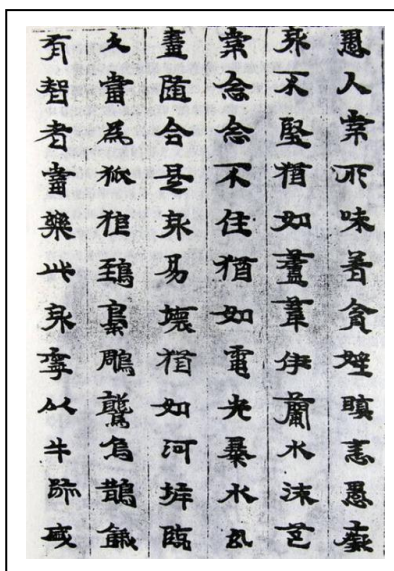 愚人常所味著貪婬瞋恚愚癡
身不堅猶如蘆葦伊蘭水沫芭
常念念不住猶如電光暴水幻
畫隨合是身易壞猶如河岸臨
久當為狐狼鵄梟鵰鷲烏鵲餓
有智者當樂此身寧以牛跡盛